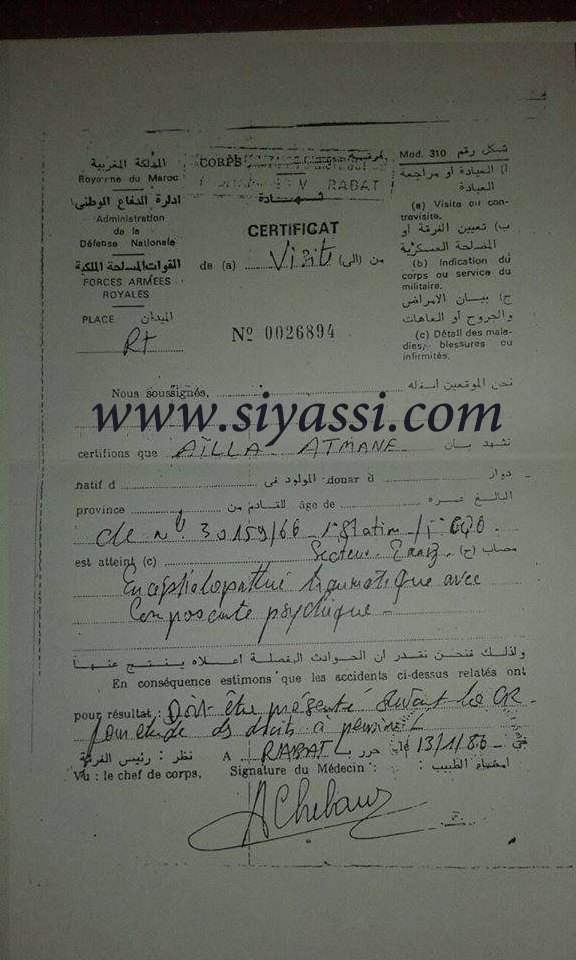 المملكة المغربية
Royaume du Maroc
ادارة الدفاع الوطنى
Administration
de la
Défense Nationale
القوات المسلحة الملكية
FORCES ARMEES
ROYALES
PLACE الميدان
Rt
CORPS
RABAT
شهادة
CERTIFICAT
de (a) Visite من (الى)
Nº 0026894
Mod. 310 شكل رقم
أ) العيادة أو مراجعة
العيادة
(a) Visite ou con-
trevisite.
ب) تعيين الفرقة او
المصلحة العسكرية
(b) Indication du
corps ou service du
militaire.
ج) بيان الامراض
والجروح أو العاهات
(c) Détail des mala-
dies, blessures ou
infirmités.
Nous soussignés, نحن الموقعين أسفله
www.siyassi.com
certifions que AÏLLA ATMANE نشهد بان
natif d المولود فى douar d دوار
province القادم من âge de البالغ عمره
de nº 30159/66
est atteint (c) Secteur مصاب (ج)
Encephalopathie traumatique avec
Composante psychique
ولذلك فنحن نقدر ان الحوادث المفصلة اعلاه ينتج عنها
En conséquence estimons que les accidents ci-dessus relatés ont
pour résultat : Doit être présenté devant la CR
pour étude des droits à pension
نظر : رئيس الفرقة A RABAT حرر le 13/1/86 فى
Vu : le chef de corps, Signature du Médecin : امضاء الطبيب :
AChebaur